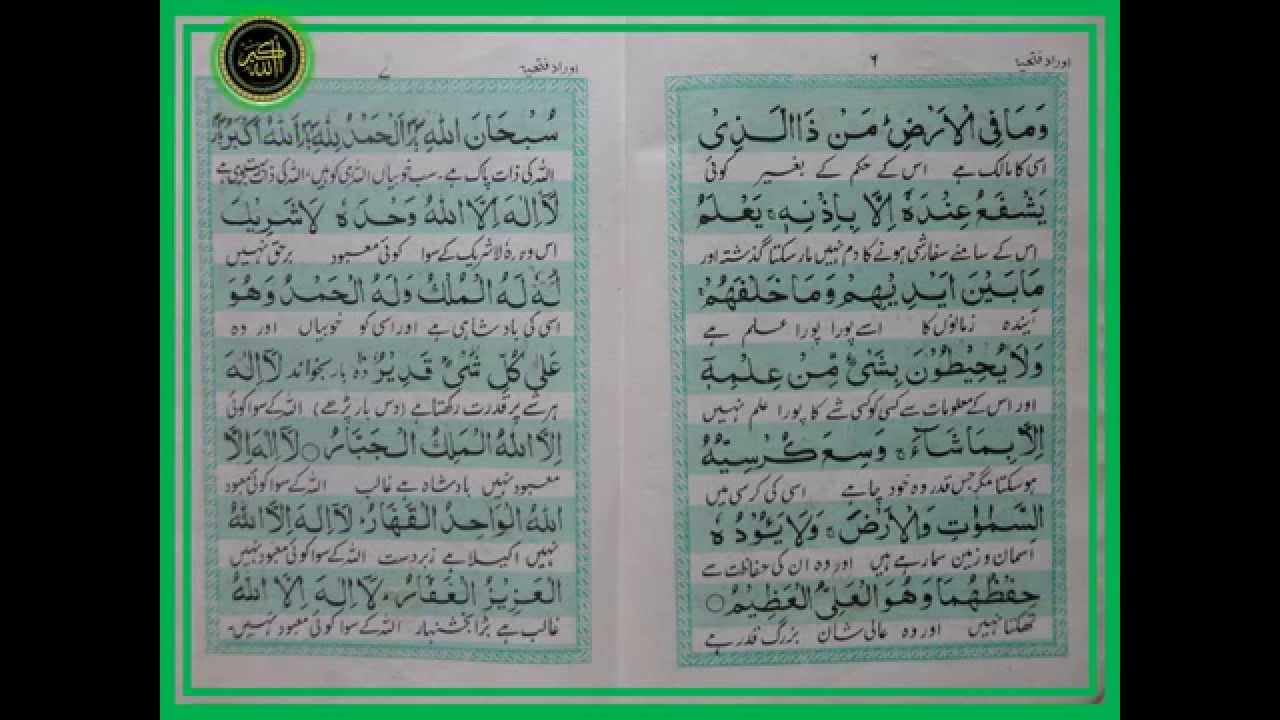 اوراد فتحیہ
۶
وَمَا فِی الْاَرْضِ مَنْ ذَا الَّذِیْ
اسی کا مالک ہے اس کے حکم کے بغیر کوئی
یَشْفَعُ عِنْدَهٗ اِلَّا بِاِذْنِهٖ یَعْلَمُ
اس کے سامنے سفارشی ہونے کا دم نہیں مار سکتا گذشتہ اور
مَا بَیْنَ اَیْدِیْهِمْ وَمَا خَلْفَهُمْ
آیندہ زمانوں کا اسے پورا پورا علم ہے
وَلَا یُحِیْطُوْنَ بِشَیْءٍ مِّنْ عِلْمِهٖ
اور اس کے معلومات سے کسی کو کسی شے کا پورا علم نہیں
اِلَّا بِمَا شَآءَ وَسِعَ كُرْسِیُّهُ
ہو سکتا مگر جس قدر وہ خود چاہے اسی کی کرسی میں
السَّمٰوٰتِ وَالْاَرْضَ وَلَا یَـُٔوْدُهٗ
آسمان و زمین سما رہے ہیں اور وہ ان کی حفاظت سے
حِفْظُهُمَا وَهُوَ الْعَلِیُّ الْعَظِیْمُ ○
تھکتا نہیں اور وہ عالی شان بزرگ قدر ہے
اوراد فتحیہ
۷
سُبْحَانَ اللهِ اَلْحَمْدُ لِلّٰهِ اَللهُ اَكْبَرُ
اللہ کی ذات پاک ہے۔ سب خوبیاں اللہ ہی کو ہیں، اللہ کی ذات ہے
لَآ اِلٰهَ اِلَّا اللهُ وَحْدَهٗ لَا شَرِیْكَ
اس وحدہٗ لا شریک کے سوا کوئی معبود برحق نہیں
لَهٗ لَهُ الْمُلْكُ وَلَهُ الْحَمْدُ وَهُوَ
اسی کی بادشاہی ہے اور اسی کو خوبیاں اور وہ
عَلٰی كُلِّ شَیْءٍ قَدِیْرٌ دہ بار بخواند لَآ اِلٰهَ
ہر شے پر قدرت رکھتا ہے (دس بار پڑھے) اللہ کے سوا کوئی
اِلَّا اللهُ الْمَلِكُ الْجَبَّارُ ○ لَآ اِلٰهَ اِلَّا
معبود نہیں بادشاہ ہے غالب اللہ کے سوا کوئی معبود
اللهُ الْوَاحِدُ الْقَهَّارُ لَآ اِلٰهَ اِلَّا اللهُ
نہیں اکیلا ہے زبردست اللہ کے سوا کوئی معبود نہیں
الْعَزِیْزُ الْغَفَّارُ لَآ اِلٰهَ اِلَّا اللهُ
غالب ہے بڑا بخشنہار اللہ کے سوا کوئی معبود نہیں۔
الله اكبر